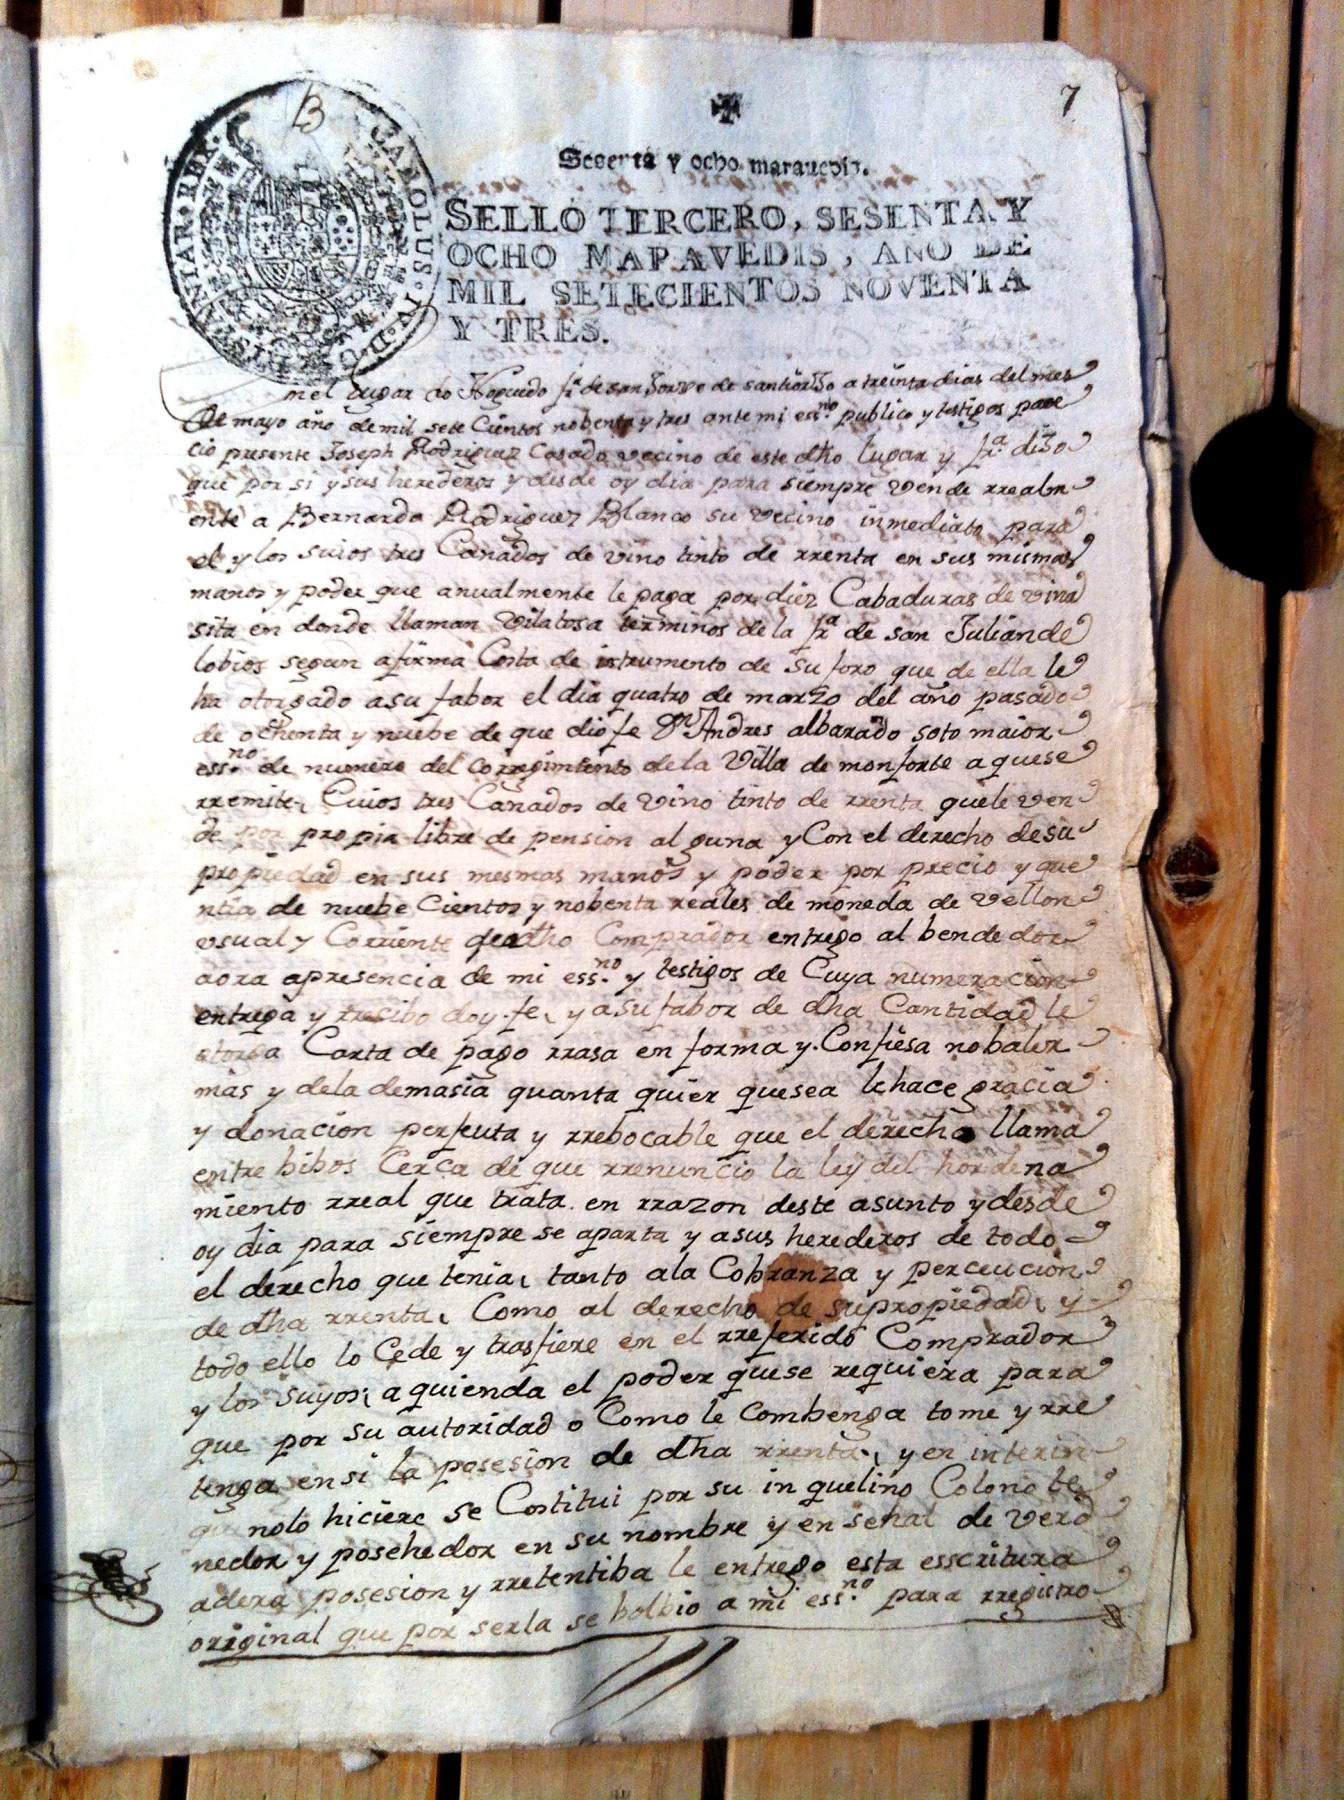 B
7
Sesenta y ocho maravedis.
CAROLUS. IV. D. G. HISPANIAR. REX.
SELLO TERCERO, SESENTA Y
OCHO MARAVEDIS, AÑO DE
MIL SETECIENTOS NOVENTA
Y TRES.
nel Lugar do Nogueido fra. de san Jorge de santiorxo a treinta dias del mes
de mayo año de mil sete Cientos nobenta y tres ante mi essno. publico y testigos pare
cio presente Joseph Rodriguez Casado vecino de este dho lugar y fra. dixo
que por si y sus herederos y desde oy dia para siempre vende rrealm
ente a Bernardo Rodriguez Blanco su vecino inmediato para
el y los suios tres Cañados de vino tinto de rrenta en sus mismas
manos y poder que anualmente le paga por diez Cabaduras de viña
sita en donde llaman Vilatosa terminos de la fra de san Julian de
lobios segun afirma Costa de istrumento de su foro que de ella le
ha otorgado a su fabor el dia quatro de marzo del año pasado
de ochenta y nuebe de que dio fe Dn Andres albarado soto maior
essno. de numero del corregimiento de la Villa de monforte a que se
rremite, Cuios tres Cañados de vino tinto de rrenta que le ven
de por propia libre de pension alguna y Con el derecho de su
propiedad en sus mesmas manos y poder por precio y que
ntia de nuebe Cientos y nobenta reales de moneda de vellon
usual y Corriente que dho Comprador entrego al bendedor
aora a presencia de mi essno. y testigos de Cuya numeracion
entrega y rresibo doy fe, y a su fabor de dha Cantidad le
otorga Carta de pago rrasa en forma y Confiesa no baler
mas y de la demasia quanta quier que sea le hace gracia
y donacion perfeuta y rrebocable que el derecho llama
entre bibos Cerca de que rrenuncio la ley del hordena
miento rreal que trata en rrazon deste asunto y desde
oy dia para siempre se aparta y a sus herederos de todo
el derecho que tenia, tanto a la Cobranza y perceucion
de dha rrenta, Como al derecho de su propiedad, y
todo ello lo Cede y trasfiere en el rreferido Comprador
y los suyos, a quien da el poder que se requiera para
que por su autoridad o Como le combenga tome y rre
tenga en si la posesion de dha rrenta, y en interin
que no lo hiciere se Costitui por su inquelino Colono te
nedor y posehedor en su nombre y en señal de verd
adera posesion y rretentiba le entrego esta esscritura
original que por serla se bolbio a mi essno. para rregistro